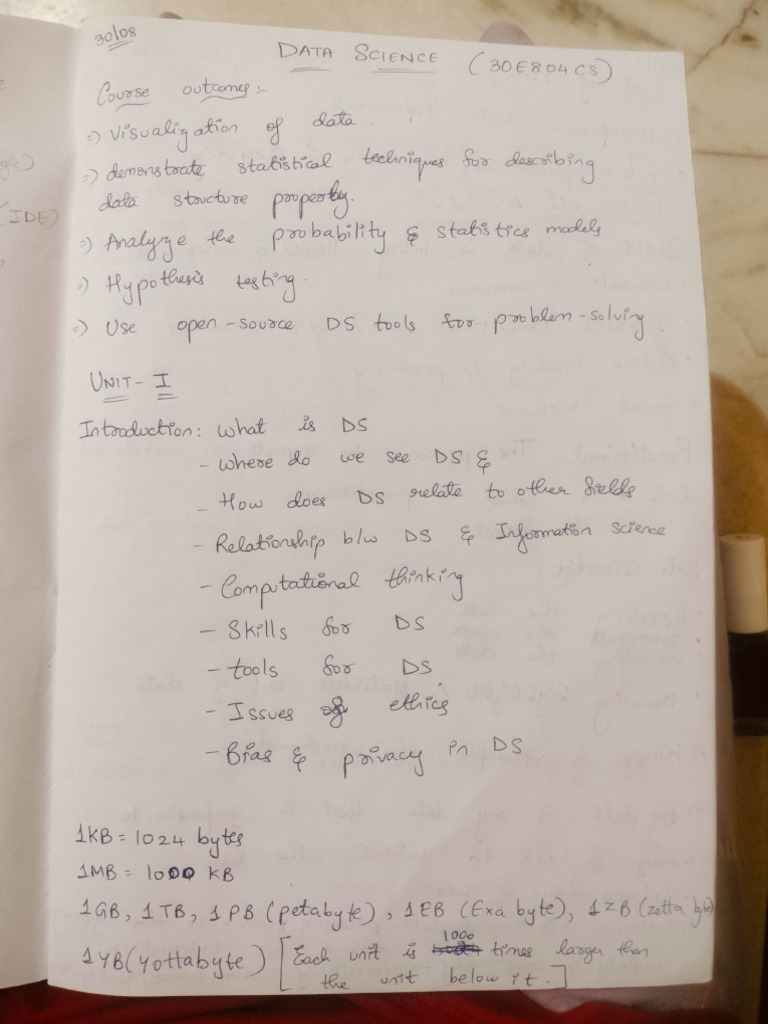 30/08
DATA SCIENCE (30E804CS)
Course outcomes :-
=) Visualization of data.
=) demonstrate statistical techniques for describing
data structure property.
=) Analyze the probability & statistics models
=) Hypothesis testing.
=) Use open-source DS tools for problem-solving.
UNIT - I
Introduction: What is DS
- where do we see DS &
- How does DS relate to other fields
- Relationship b/w DS & Information science
- Computational thinking
- Skills for DS
- tools for DS.
- Issues of ethics
- Bias & privacy in DS.
1KB = 1024 bytes
1MB = 1000 KB
1GB, 1TB, 1PB (petabyte), 1EB (Exa byte), 1ZB (zetta byte)
1YB (yottabyte) [Each unit is 1000 times larger than
the unit below it.]
gle)
(IDE)